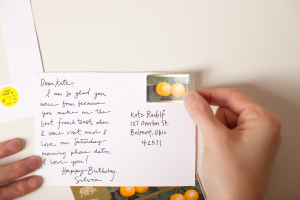 Dear Kate,
I am so glad you
were born because
you make me the
best french toast when
I come visit and I
love our Saturday
morning phone dates.
I love you!
Happy Birthday,
Silvia
Kate Radolf
127 Overton St
Belmont, Ohio
42571